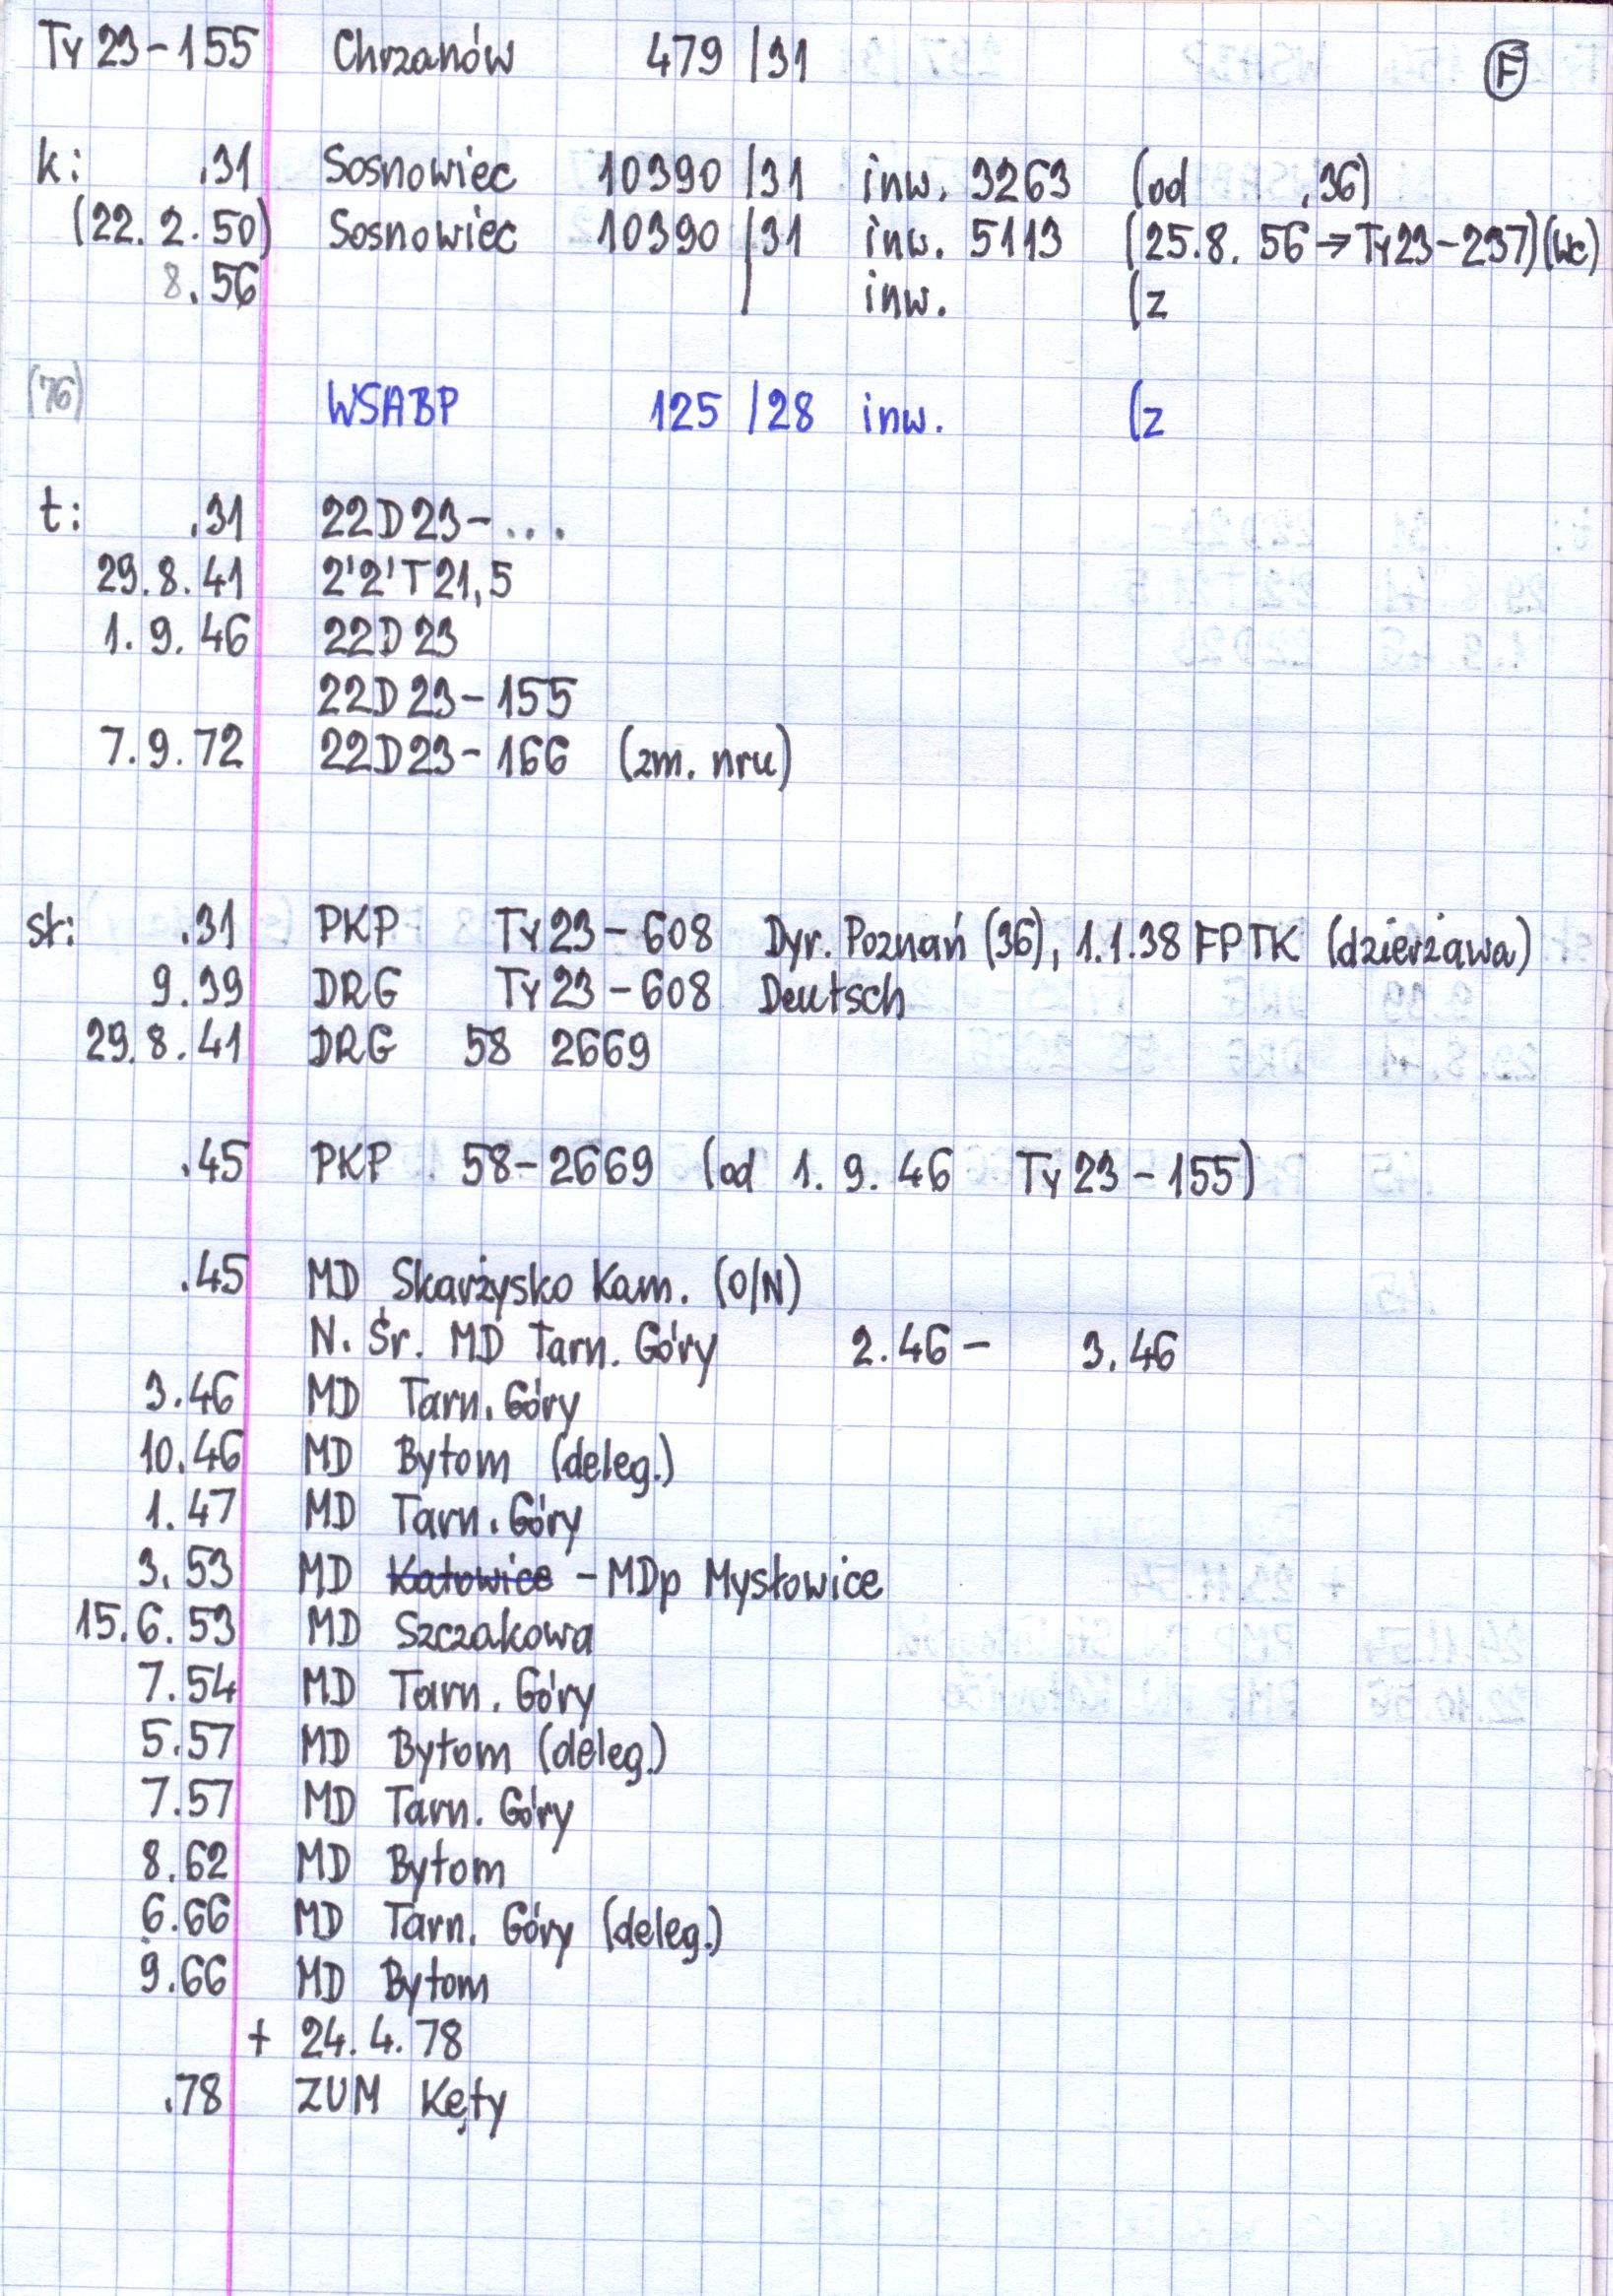 Ty 23-155 Chrzanów 479/31 F
k: .31 Sosnowiec 10390/31 inw. 3263 (od .36)
(22.2.50) Sosnowiec 10390/31 inw. 5113 (25.8.56→Ty23-237)(wc)
8.56 / inw. (z
(76) WSABP 125/28 inw. (z
t: .31 22D23-...
29.8.41 2'2'T21,5
1.9.46 22D23
22D23-155
7.9.72 22D23-166 (zm. nru)
st: .31 PKP Ty23-608 Dyr. Poznań (36), 1.1.38 FPTK (dzierżawa)
9.39 DRG Ty23-608 Deutsch
29.8.41 DRG 58 2669
.45 PKP 58-2669 (od 1.9.46 Ty23-155)
.45 MD Skarżysko Kam. (O/N)
N. Śr. MD Tarn. Góry 2.46 - 3.46
3.46 MD Tarn. Góry
10.46 MD Bytom (deleg.)
1.47 MD Tarn. Góry
3.53 MD Katowice - MDp Mysłowice
15.6.53 MD Szczakowa
7.54 MD Tarn. Góry
5.57 MD Bytom (deleg.)
7.57 MD Tarn. Góry
8.62 MD Bytom
6.66 MD Tarn. Góry (deleg.)
9.66 MD Bytom
+ 24.4.78
.78 ZUM Kęty